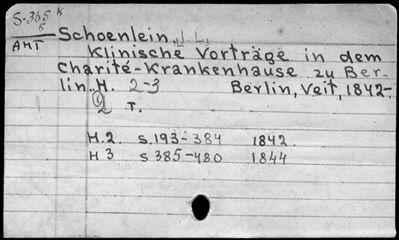 S-365 K
AMT
Schoenlein, J. L.
Klinische Vorträge in dem
Charité-Krankenhause zu Ber-
lin. H. 2-3 Berlin, Veit, 1842-
2 T.
H.2 S.193-384 1842
H 3 S 385-480 1844